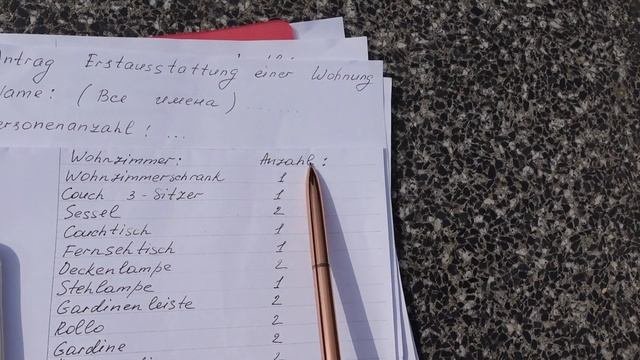 ntrag Erstausstattung einer Wohnung
ame: (Все имена) ......
ersonenanzahl! ...
Wohnzimmer: Anzahl:
Wohnzimmerschrank 1
Couch 3-Sitzer 1
Sessel 2
Couchtisch 1
Fernsehtisch 1
Deckenlampe 2
Stehlampe 1
Gardinenleiste 2
Rollo 2
Gardine 2